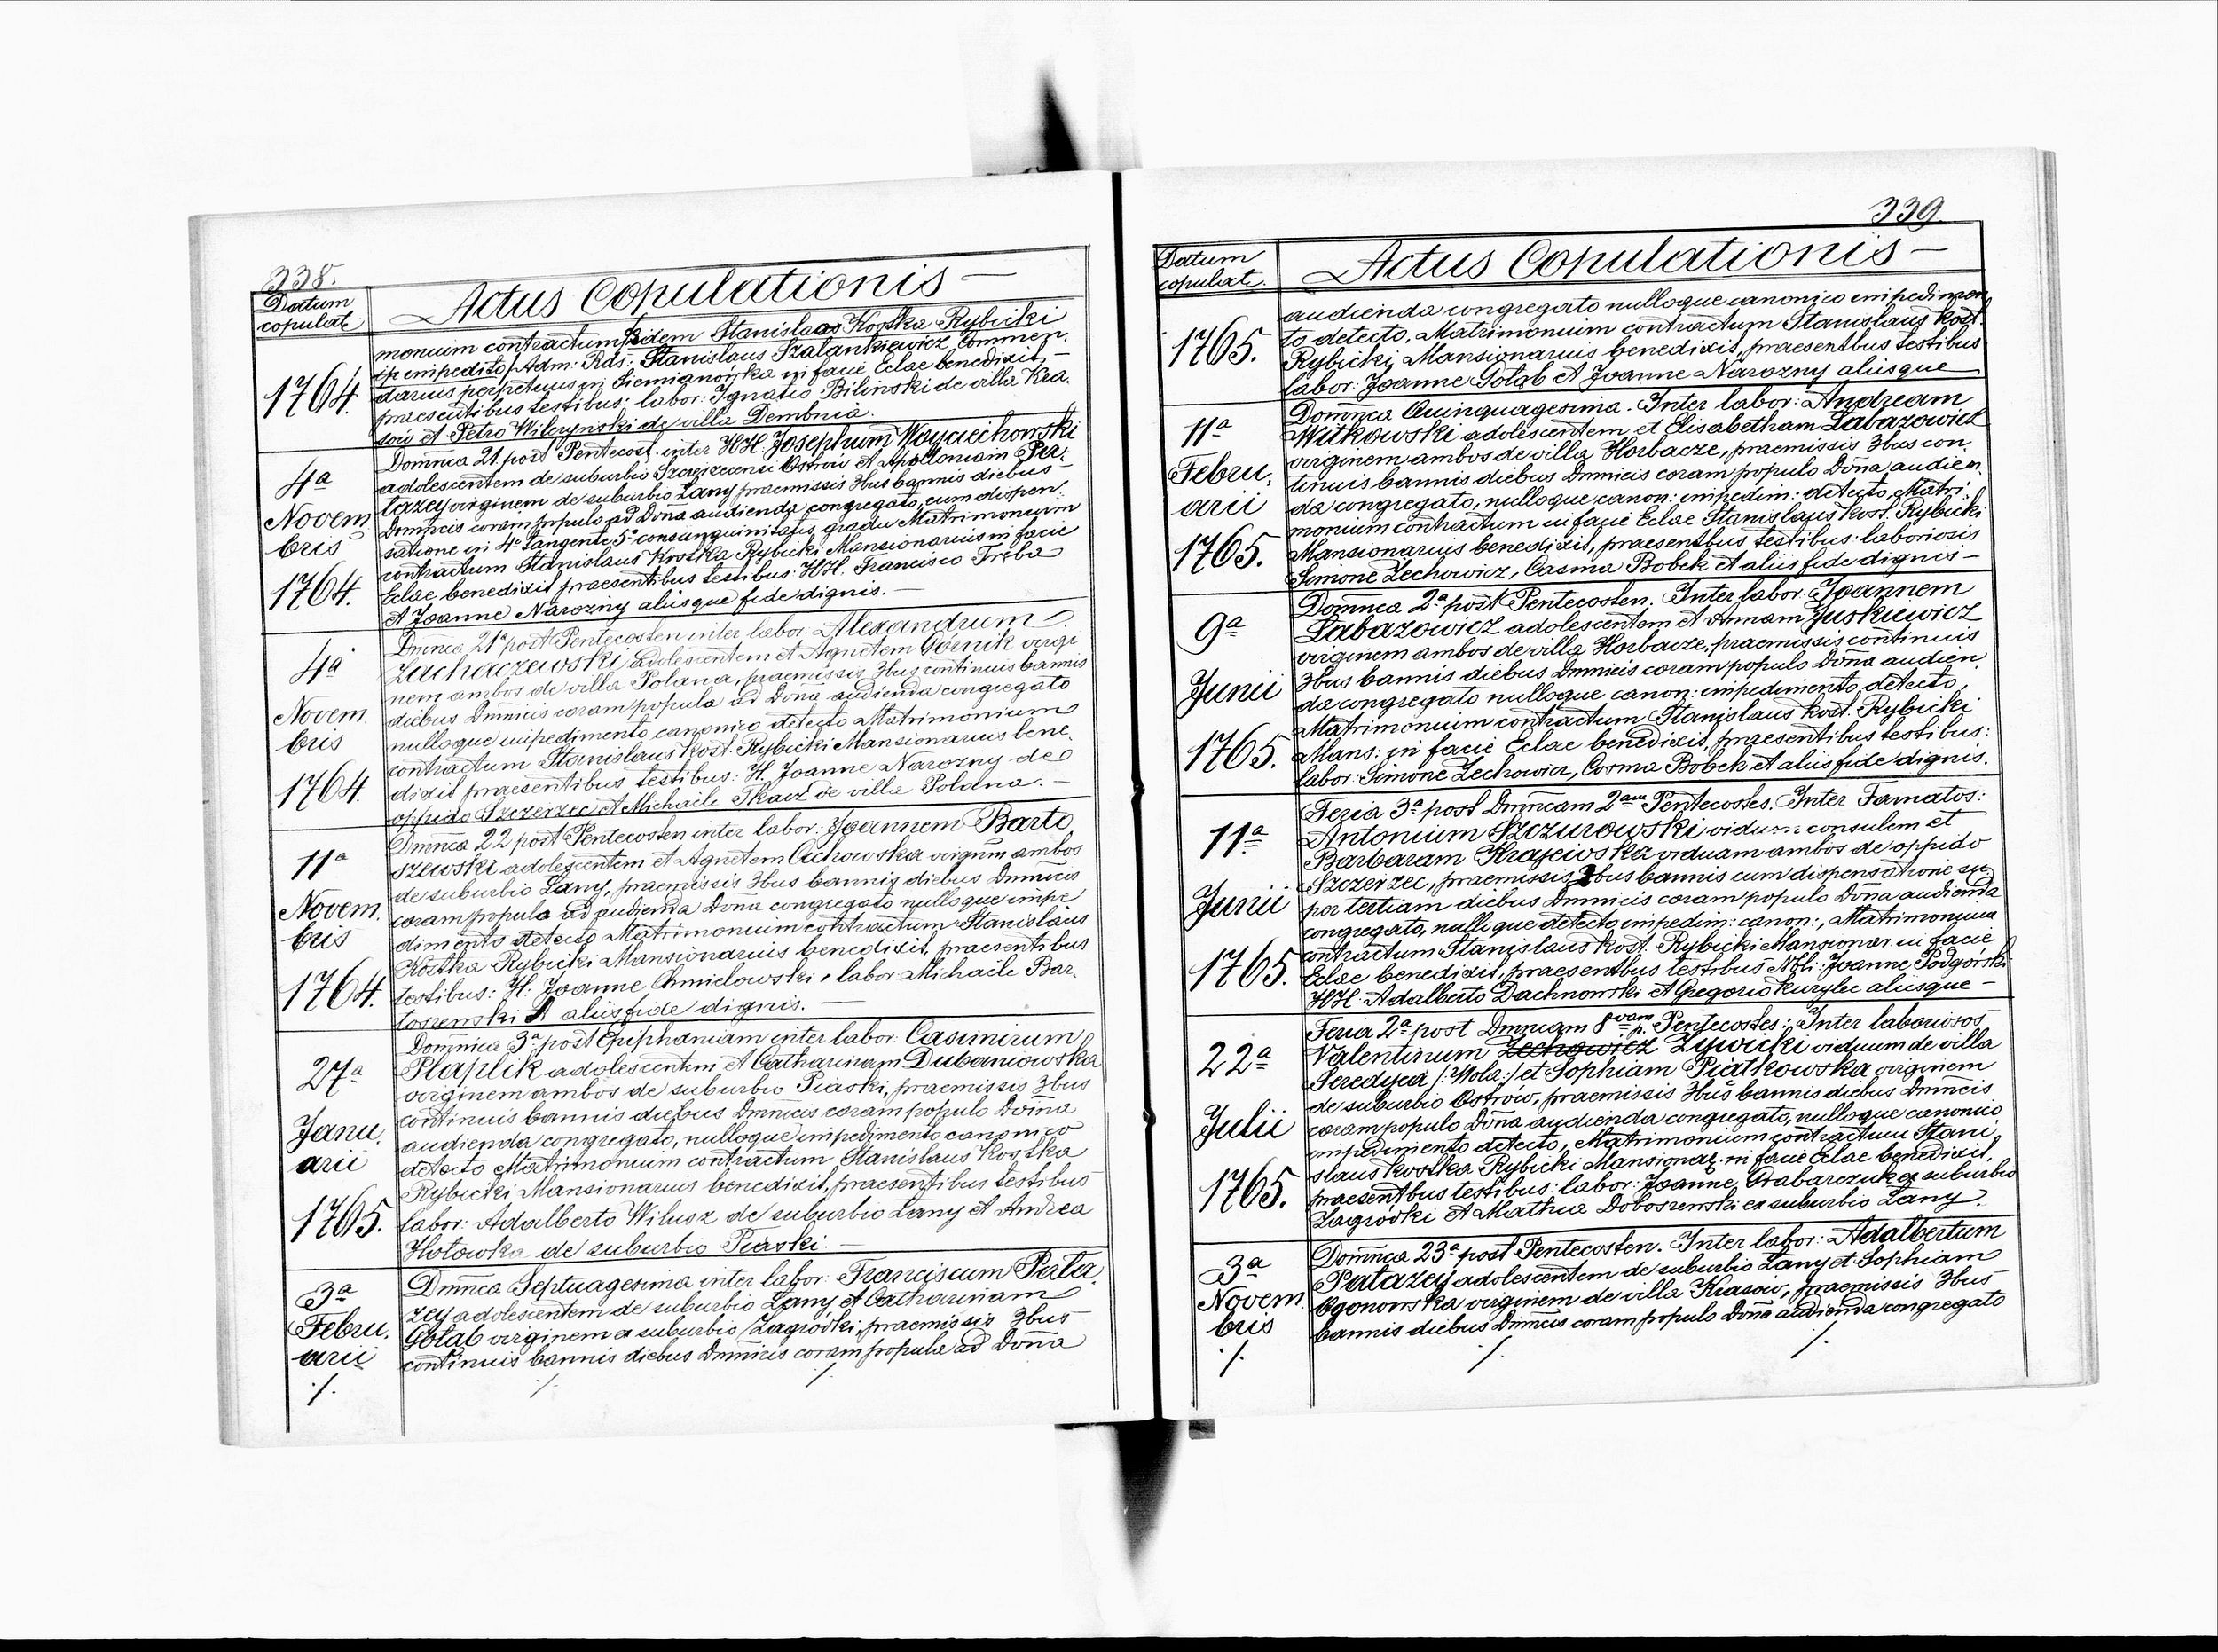 338.
Datum
copulat.
Actus Copulationis —
1764.
monium contractum eidem Stanislao Kostka Rybicki
impedito, Adm: Rds: Stanislaus Szalankiewicz Commen-
darius perpetuus in Siemianowka in facie Eclae benedixit, —
praesentibus testibus: labor: Ignatio Bilinski de villa Kra-
sow et Petro Wilczynski de villa Dembnia.
4ª
Novem
bris
1764.
Domnca 21 post Pentecost. inter HH. Josephum Woyciechowski
adolescentem de suburbio Szczerzecensi Ostrow et Apolloniam Pa-
tazey virginem de suburbio Lany praemissis 3bus bannis diebus
Dmnicis coram populo ad Dona audienda congregato, cum dispen-
satione in 4º tangente 5º consanguinitatis gradu Matrimonium
contractum Stanislaus Kostka Rybicki Mansionarius in facie
Eclae benedixit praesentibus testibus: HH. Francisco Tręba
et Joanne Narozny aliisque fide dignis. —
4ª
Novem.
bris
1764.
Dmnca 21ª post Pentecosten inter labor: Alexandrum
Zachaczewski adolescentem et Agnetem Górnik virgi
nem ambos de villa Polana, praemissis 3bus continuis bannis
diebus Dmnicis coram populo ad Dona audienda congregato
nulloque impedimento canonico detecto Matrimonium
contractum Stanislaus Kost. Rybicki Mansionarius bene-
dixit praesentibus testibus: H. Joanne Narozny de
oppido Szczerzec et Michaele Tkacz de villa Polana. —
11ª
Novem.
bris
1764.
Dmnca 22 post Pentecosten inter labor: Joannem Barto
szewski adolescentem et Agnetem Cichowska virginem ambos
de suburbio Lany, praemissis 3bus bannis diebus Dmnicis
coram populo ad audienda Dona congregato nulloque impe
dimento detecto Matrimonium contractum Stanislaus
Kostka Rybicki Mansionarius benedixit, praesentibus
testibus: H. Joanne Chmielowski, labor. Michaele Bar-
toszewski et aliis fide dignis. —
27ª
Janu.
arii
1765.
Domnica 3ª post Epiphaniam inter labor: Casimirum
Ptaplik adolescentem et Catharinam Dubaniowska
virginem ambos de suburbio Piaski, praemissis 3bus
continuis bannis diebus Dmnicis coram populo Domna
audienda congregato, nulloque impedimento canonico
detecto Matrimonium contractum Stanislaus Kostka
Rybicki Mansionarius benedixit, praesentibus testibus
labor: Adalberto Wilusz de suburbio Lany et Andrea
Hołowka de suburbio Piaski. —
3ª
Febru.
arii
./.
Dmnca Septuagesima inter labor: Franciscum Pata-
zey adolescentem de suburbio Lany et Catharinam
Gołab virginem ex suburbio Zagrodki, praemissis 3bus
continuis bannis diebus Dmnicis coram populo ad Dona
./. ./.
339.
Datum
copulat.
Actus Copulationis —
1765.
audienda congregato nulloque canonico impedimen
to detecto, Matrimonium contractum Stanislaus Kost.
Rybicki Mansionarius benedixit, praesentbus testibus
labor: Joanne Gołąb et Joanne Narozny aliisque
11ª
Febru.
arii
1765.
Domnca Quinquagesima. Inter labor: Andream
Witkowski adolescentem et Elisabetham Labazowicz
virginem ambos de villa Horbacze, praemissis 3bus con-
tinuis bannis diebus Dmnicis coram populo Dona audien-
da congregato, nulloque canon: impedim: detecto, Matri-
monium contractum in facie Eclae Stanislaus Kost. Rybicki
Mansionarius benedixit, praesentbus testibus: laboriosis
Simone Zechowicz, Casma Bobek et aliis fide dignis —
9ª
Junii
1765.
Domnca 2ª post Pentecosten. Inter labor: Joannem
Labazowicz adolescentem et Annam Juskiewicz
virginem ambos de villa Horbacze, praemissis continuis
3bus bannis diebus Dmnicis coram populo Dona audien-
da congregato nulloque canon: impedimento detecto,
Matrimonium contractum Stanislaus Kost. Rybicki
Mans: in facie Eclae benedixit, praesentibus testibus:
labor: Simone Zechowicz, Cosma Bobek et aliis fide dignis.
11ª
Junii
1765.
Feria 3ª post Dmncam 2am Pentecostes. Inter Famatos:
Antonium Szczurowski viduum consulem et
Barbaram Krajewska viduam ambos de oppido
Szczerzec, praemissis 2bus bannis cum dispensatione su-
per tertiam diebus Dmnicis coram populo Dona audienda
congregato, nulloque detecto impedim: canon:, Matrimonium
contractum Stanislaus Kost. Rybicki Mansionar. in facie
Eclae benedixit, praesentbus testibus Nbli: Joanne Podgórski
HH: Adalberto Dachnowski et Gregorio Kurylec aliisque —
22ª
Julii
1765.
Feria 2ª post Dmncam 8vam p. Pentecostes: Inter laboriosos
Valentinum Zechowicz Zywicki viduum de villa
Seredyca /: Wola :/ et Sophiam Piatkowska virginem
de suburbio Ostrów, praemissis 3bus bannis diebus Dmnicis
coram populo Dona audienda congregato, nulloque canonico
impedimento detecto, Matrimonium contractum Stani-
slaus Kostka Rybicki Mansionar. in facie Eclae benedixit,
praesentbus testibus: labor: Joanne Grabarczuk ex suburbio
Zagródki et Mathia Doboszenski ex suburbio Lany.
3ª
Novem.
bris
./.
Domnca 23ª post Pentecosten. Inter labor: Adalbertum
Patazey adolescentem de suburbio Lany et Sophiam
Ogonowska virginem de villa Krasow, praemissis 3bus
bannis diebus Dmnicis coram populo Dona audienda congregato
./. ./.